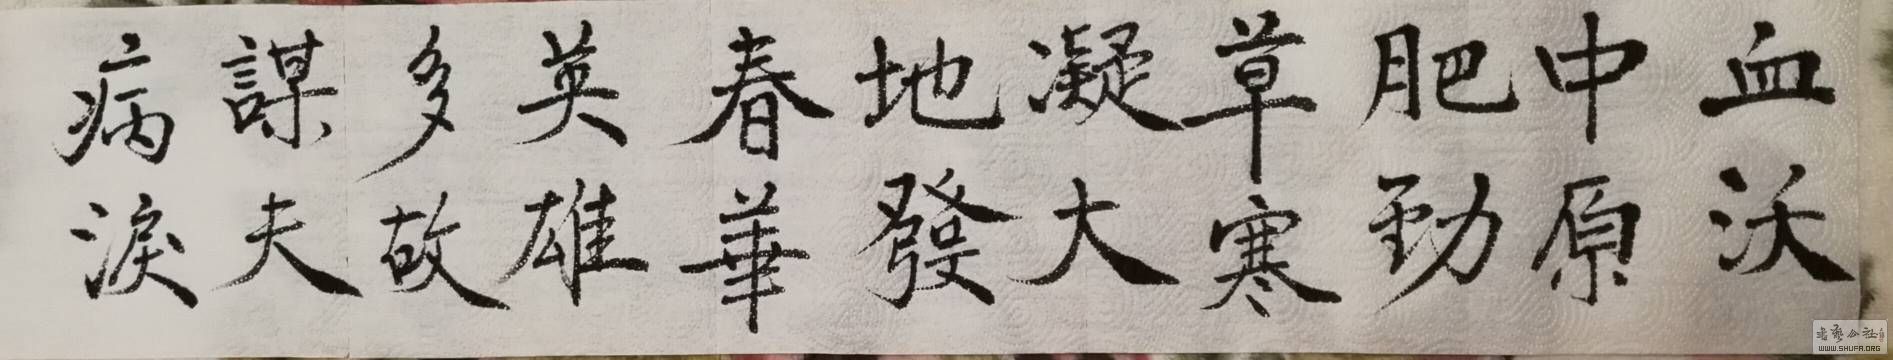 血沃
中原
肥劲
草寒
凝大
地發
春華
英雄
多故
謀夫
病淚
書藝公社
WWW.SHUFA.ORG